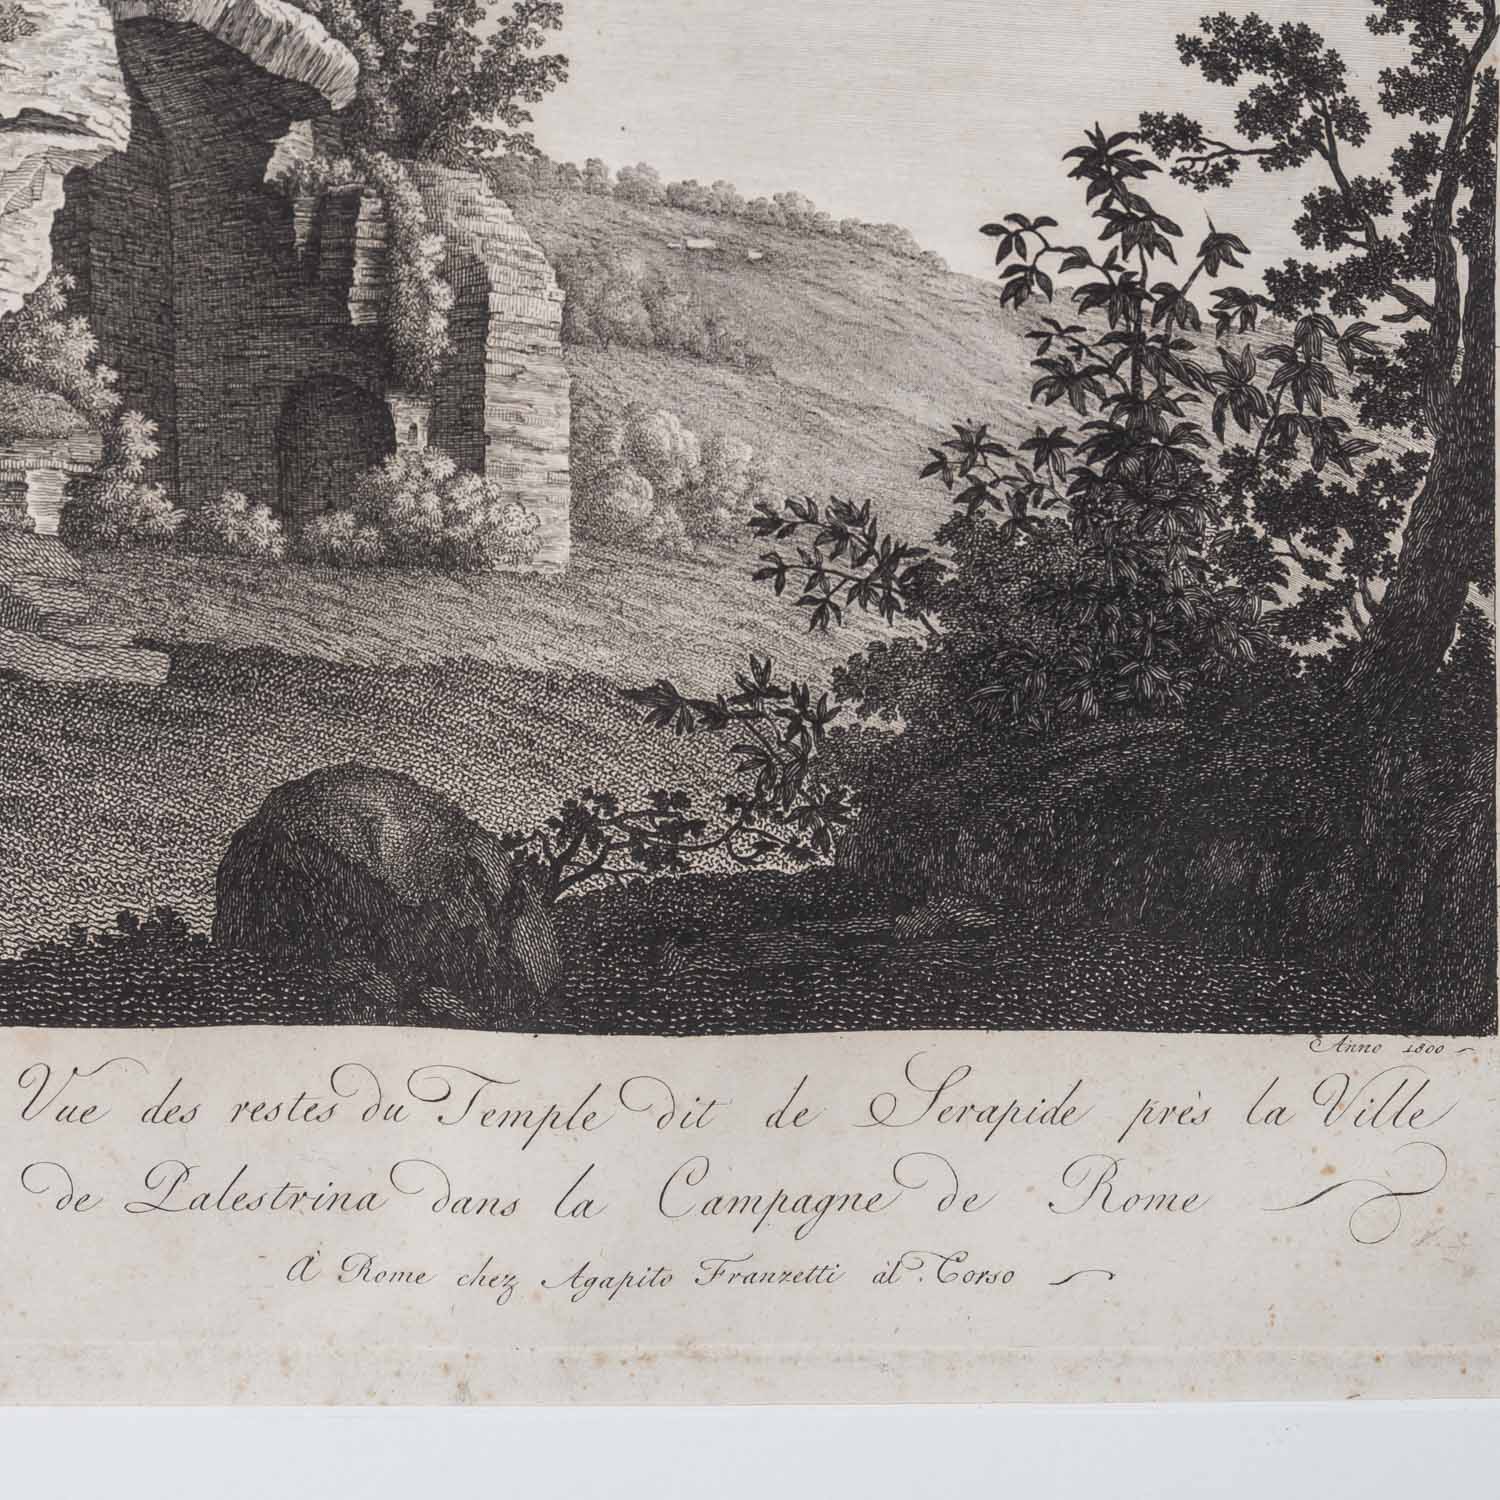 Anno 1800
Vue des restes du Temple dit de Serapide près la Ville
de Palestrina dans la Campagne de Rome
À Rome chez Agapito Franzetti al Corso